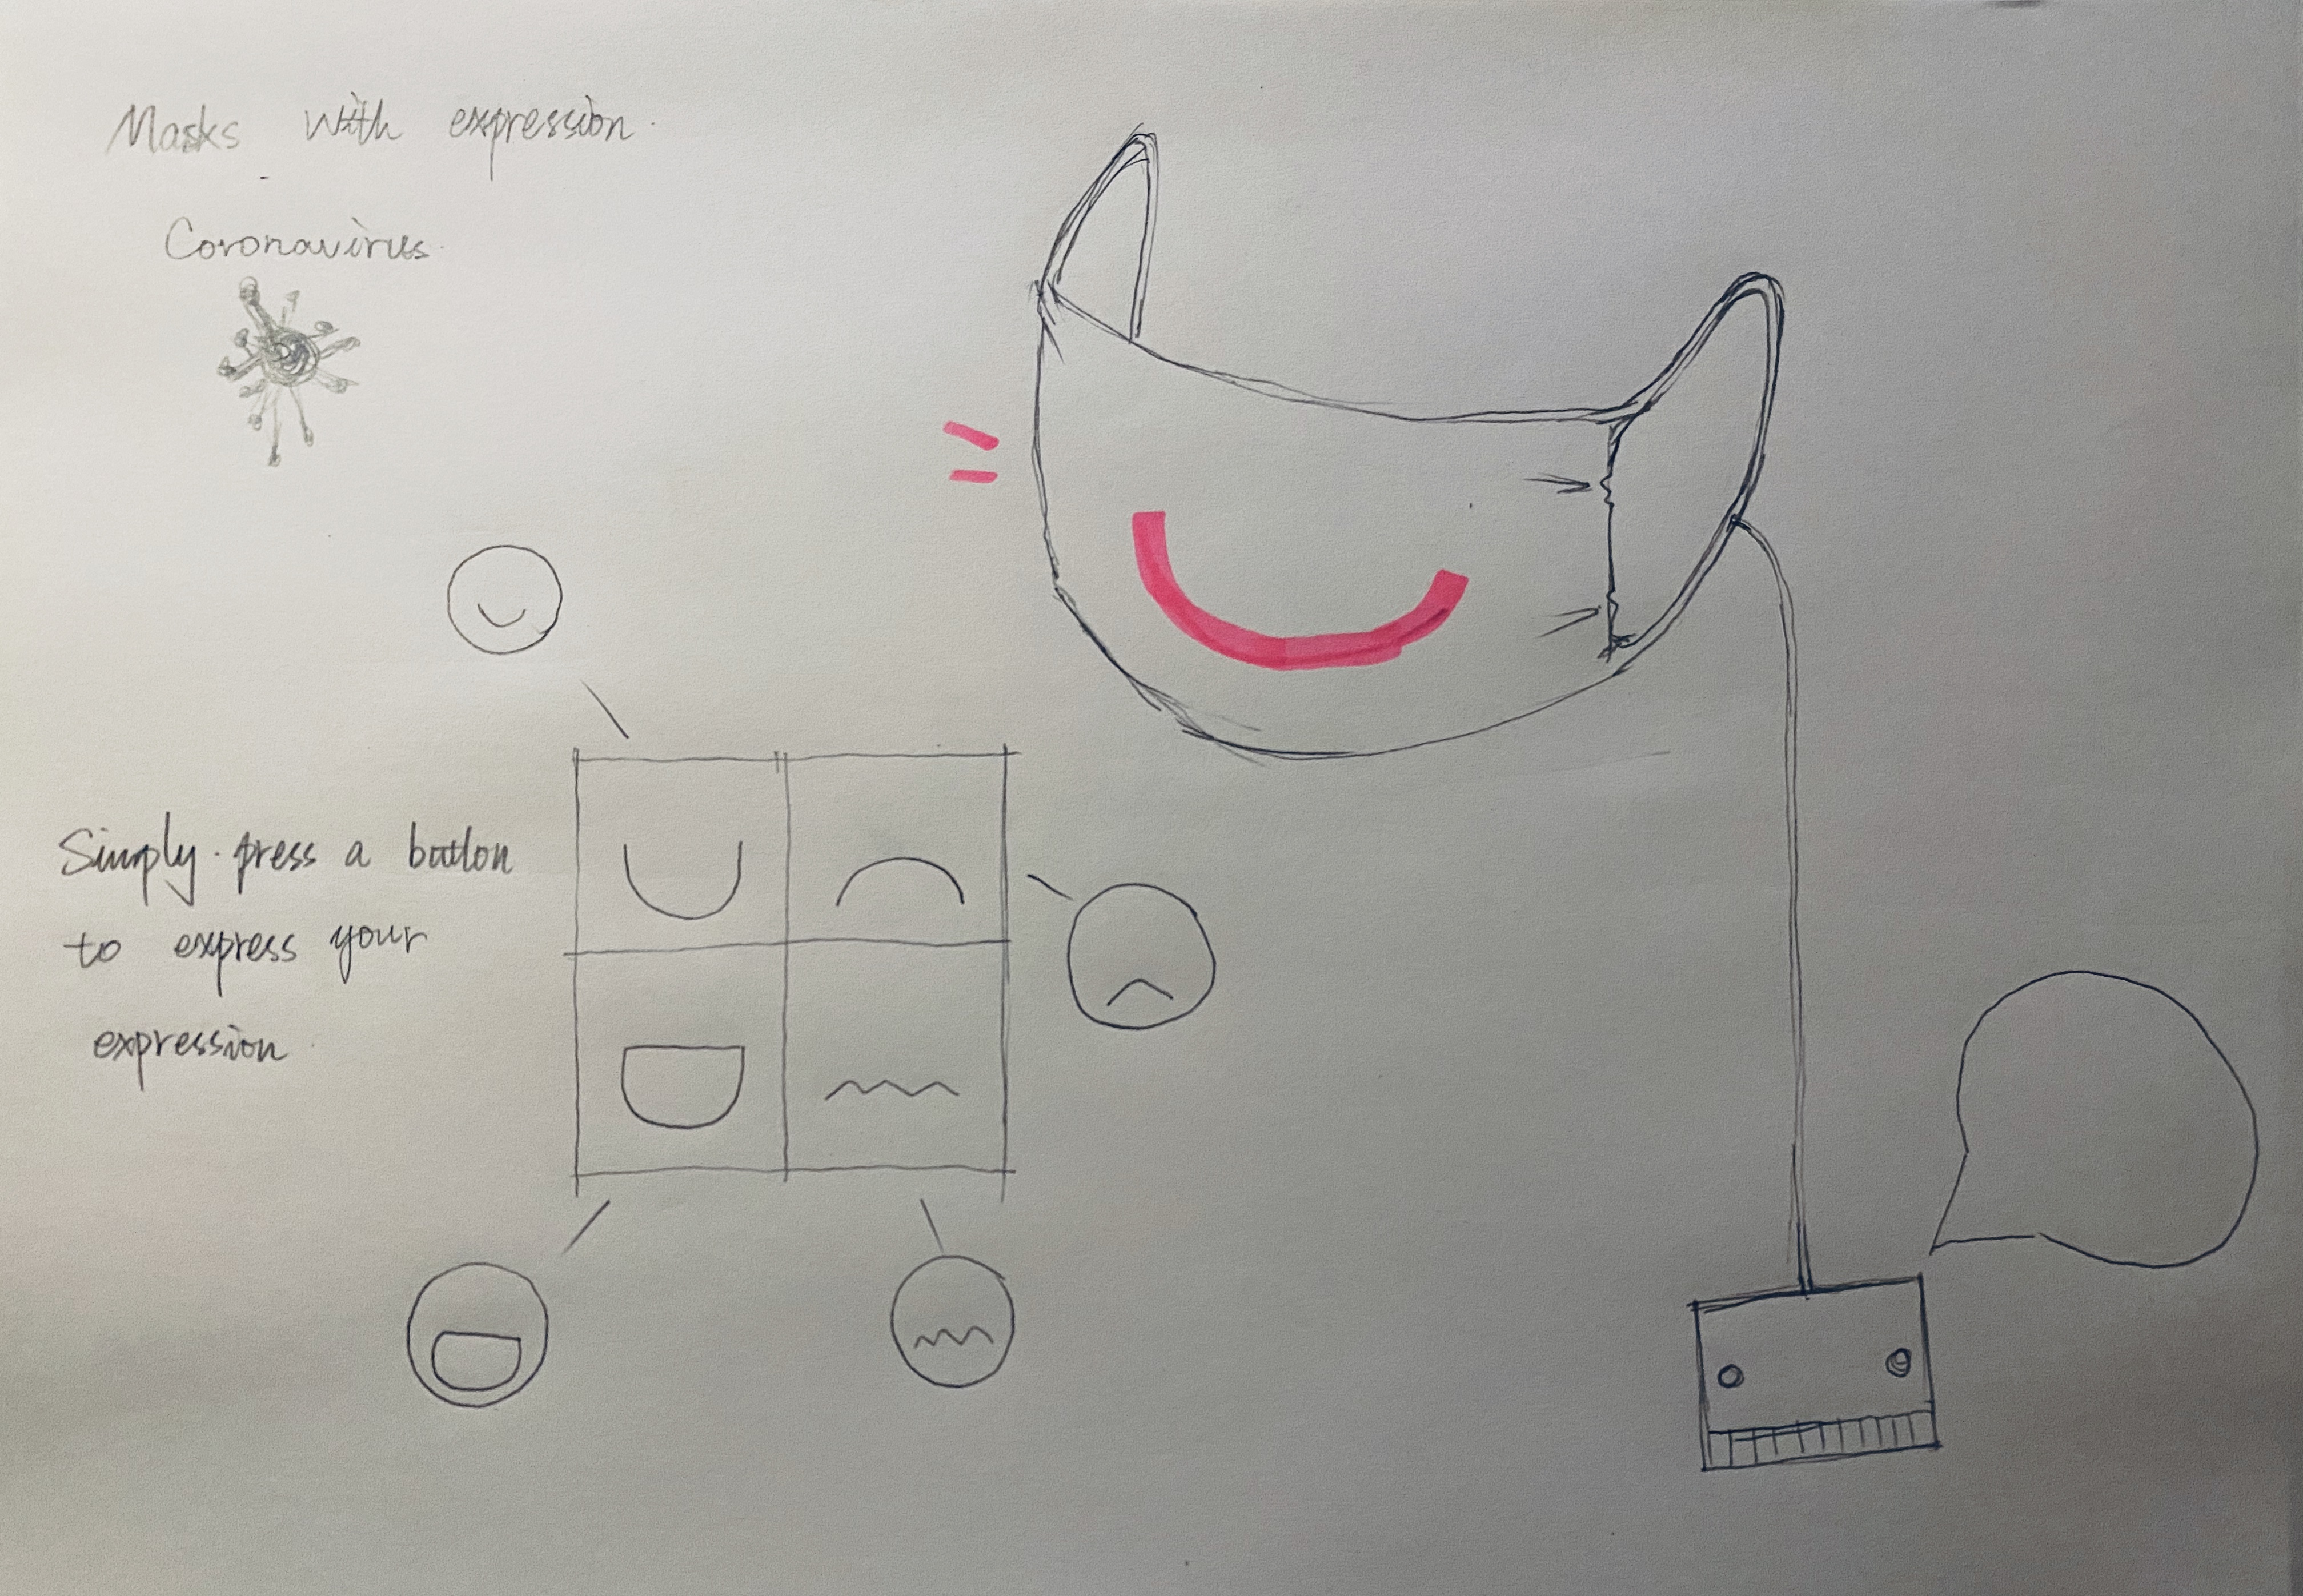 Masks with expression.
Coronavirus.
Simply press a button
to express your
expression.